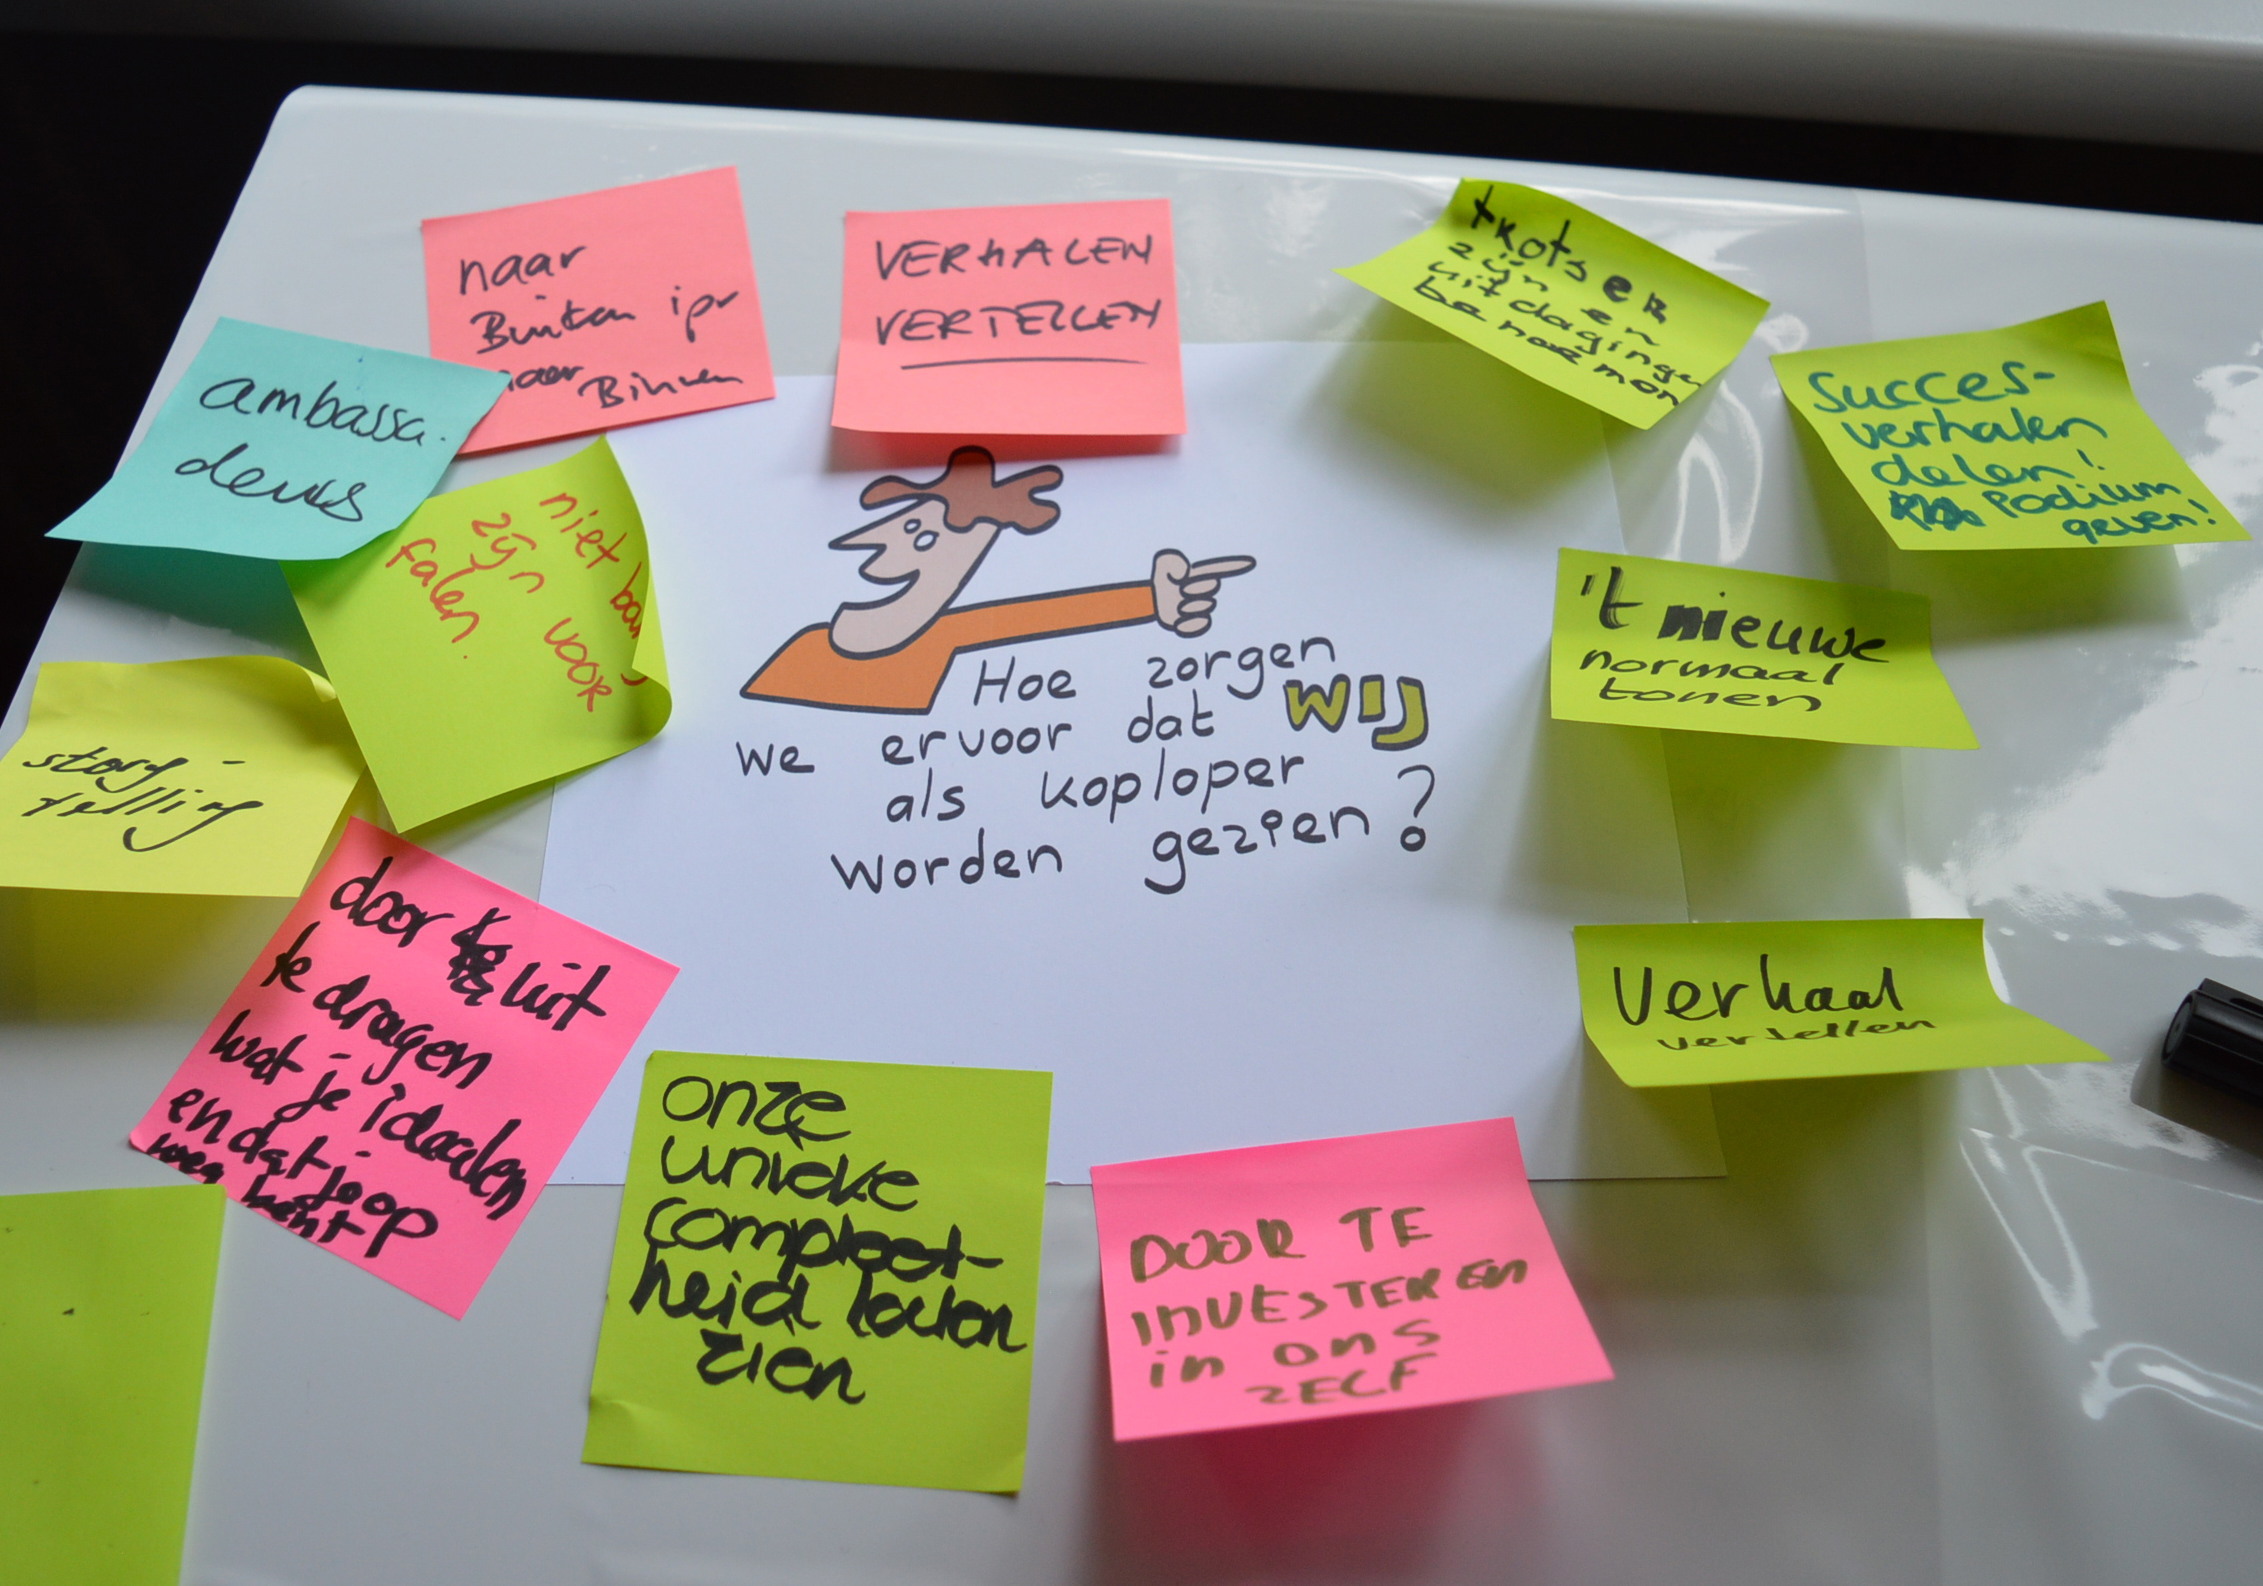 naar
Buiten ipv
naar Binnen
VERHALEN
VERTELLEN
tRotseR
zijn en
uitdagingen
benoemen
Succes-
verhalen
delen!
Podium
geven!
ambassa.
deurs
niet bang
zijn voor
falen.
't nieuwe
normaal
tonen
Hoe zorgen
we ervoor dat WIJ
als koploper
worden gezien?
story-
telling
door uit
te dragen
wat je idealen
en dat je op
weg bent
Verhaal
vertellen
onze
unieke
compleet-
heid laten
zien
DOOR TE
INVESTEREN
in ons
ZELF